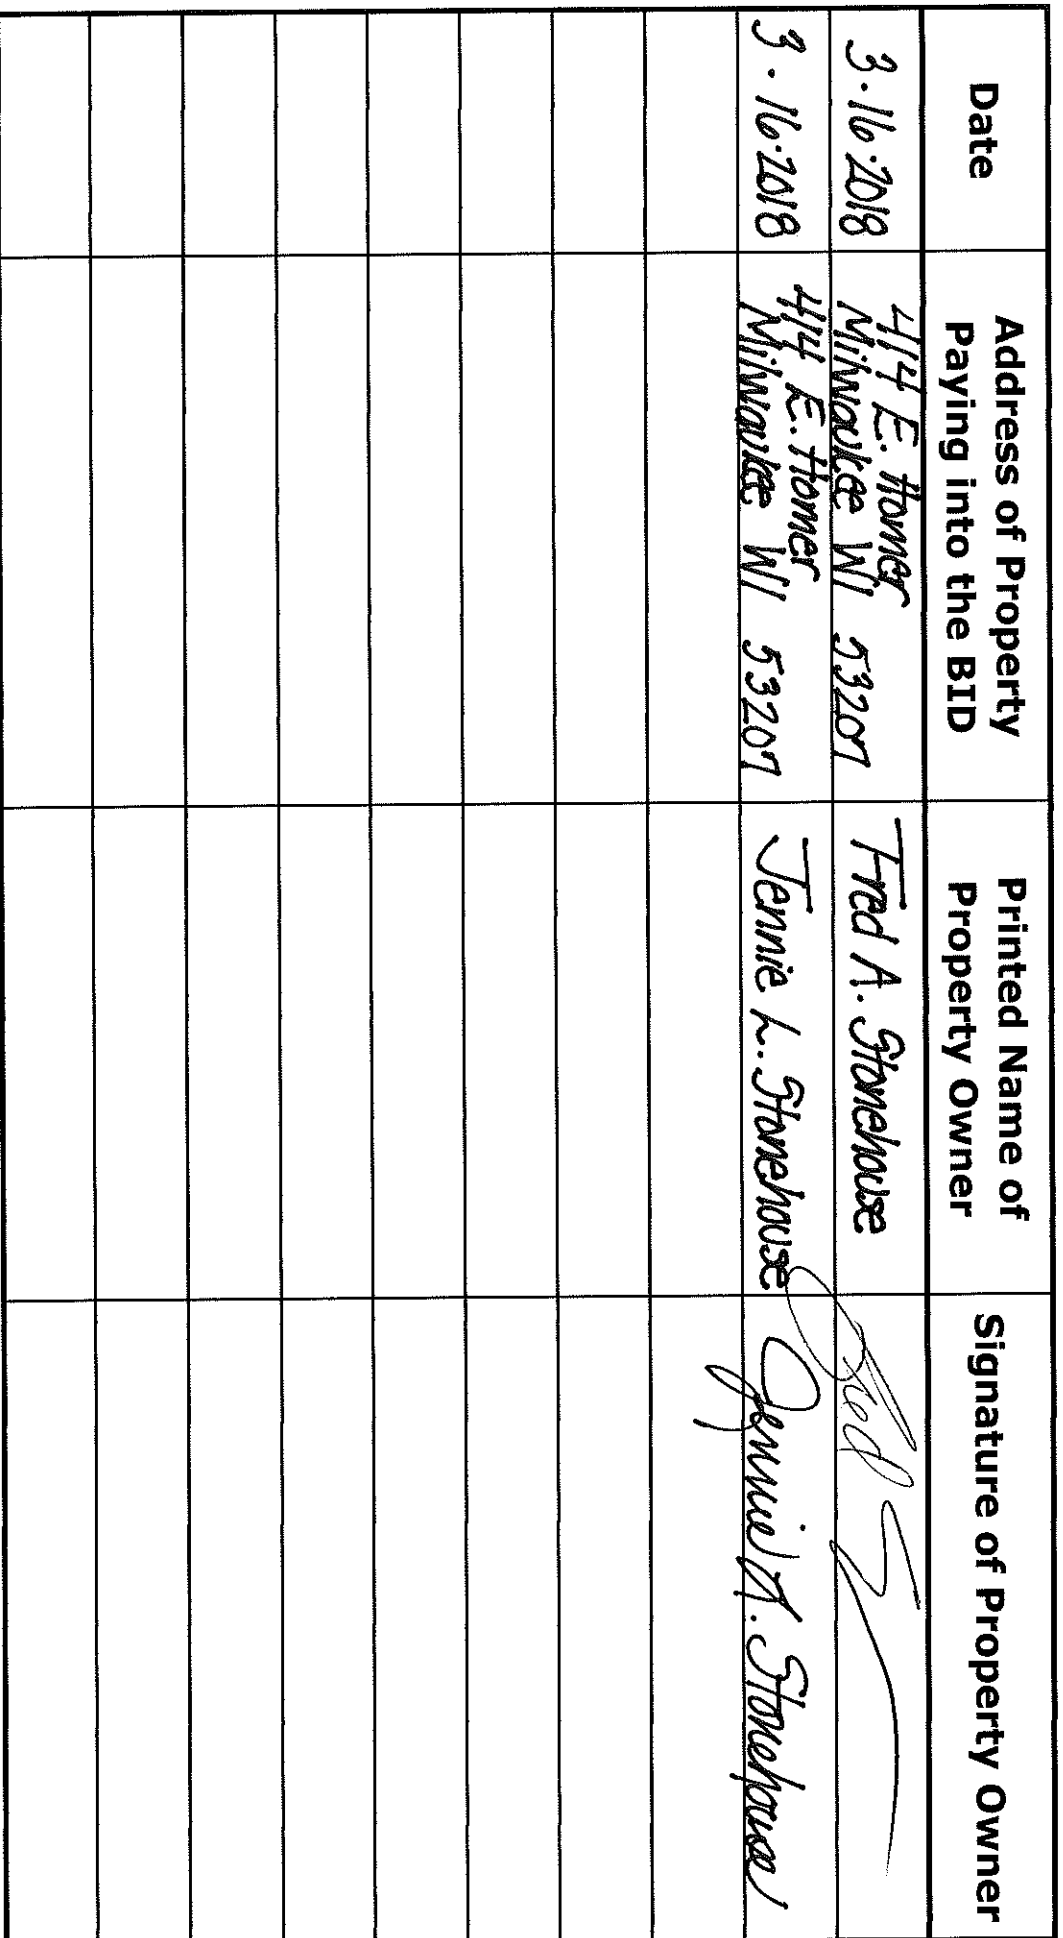 Date
Address of Property
Paying into the BID
Printed Name of
Property Owner
Signature of Property Owner
3.16.2018
414 E. Homer
Milwaukee WI 53207
Fred A. Stonehouse
Fred S
3.16.2018
414 E. Homer
Milwaukee WI 53207
Jennie L. Stonehouse
Jennie L. Stonehouse